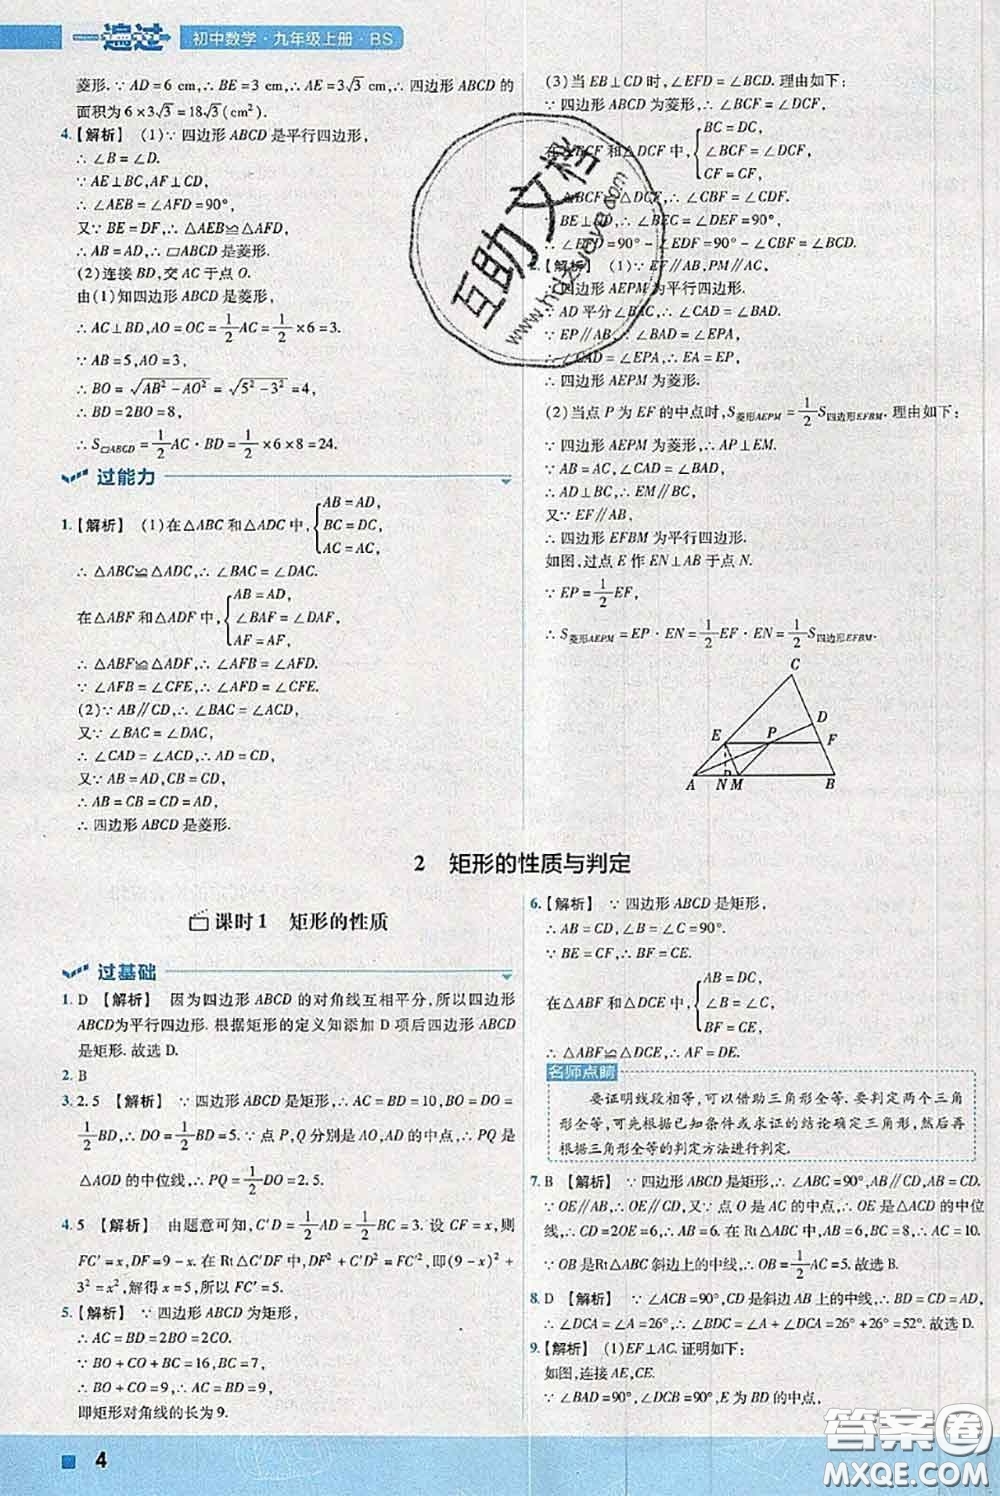 一遍过 初中数学·九年级上册·BS
菱形.∵AD=6 cm,∴BE=3 cm,∴AE=3√3 cm,∴四边形ABCD的
面积为6×3√3=18√3(cm²).
4.【解析】 (1)∵四边形ABCD是平行四边形,
∴∠B=∠D.
∵AE⊥BC,AF⊥CD,
∴∠AEB=∠AFD=90°,
又∵BE=DF,∴△AEB≌△AFD,
∴AB=AD,∴▱ABCD是菱形.
(2)连接BD,交AC于点O.
由(1)知四边形ABCD是菱形,
∴AC⊥BD,AO=OC=1/2AC=1/2×6=3.
∵AB=5,AO=3,
∴BO=√(AB²-AO²)=√(5²-3²)=4,
∴BD=2BO=8,
∴S▱ABCD=1/2AC·BD=1/2×6×8=24.
过能力
1.【解析】 (1)在△ABC和△ADC中,{AB=AD,
BC=DC,
AC=AC,
∴△ABC≌△ADC,∴∠BAC=∠DAC.
在△ABF和△ADF中,{AB=AD,
∠BAF=∠DAF,
AF=AF,
∴△ABF≌△ADF,∴∠AFB=∠AFD.
∵∠AFB=∠CFE,∴∠AFD=∠CFE.
(2)∵AB∥CD,∴∠BAC=∠ACD,
又∵∠BAC=∠DAC,
∴∠CAD=∠ACD,∴AD=CD,
又∵AB=AD,CB=CD,
∴AB=CB=CD=AD,
∴四边形ABCD是菱形.
(3)当EB⊥CD时,∠EFD=∠BCD.理由如下:
∵四边形ABCD为菱形,∴∠BCF=∠DCF.
在△BCF和△DCF中,{BC=DC,
∠BCF=∠DCF,
CF=CF,
∴△BCF≌△DCF,∴∠CBF=∠CDF.
∵BE⊥CD,∴∠BEC=∠DEF=90°,
∴∠EFD=90°-∠EDF=90°-∠CBF=∠BCD.
【解析】 (1)∵EF∥AB,PM∥AC,
∴四边形AEPM为平行四边形.
∵AD平分∠BAC,∴∠CAD=∠BAD.
∵EP∥AB,∴∠BAD=∠EPA,
∴∠CAD=∠EPA,∴EA=EP,
∴四边形AEPM为菱形.
(2)当点P为EF的中点时,S菱形AEPM=1/2S四边形EFBM.理由如下:
∵四边形AEPM为菱形,∴AP⊥EM.
∵AB=AC,∠CAD=∠BAD,
∴AD⊥BC,∴EM∥BC,
又∵EF∥AB,
∴四边形EFBM为平行四边形.
如图,过点E作EN⊥AB于点N.
∵EP=1/2EF,
∴S菱形AEPM=EP·EN=1/2EF·EN=1/2S四边形EFBM.
C
D
E P F
A N M B
互助文档
www.hdzuoye.com
2 矩形的性质与判定
课时1 矩形的性质
过基础
1. D 【解析】 因为四边形ABCD的对角线互相平分,所以四边形
ABCD为平行四边形.根据矩形的定义知添加D项后四边形ABCD
是矩形.故选D.
2. B
3. 2.5 【解析】 ∵四边形ABCD是矩形,∴AC=BD=10,BO=DO=
1/2BD,∴DO=1/2BD=5.∵点P,Q分别是AO,AD的中点,∴PQ是
△AOD的中位线,∴PQ=1/2DO=2.5.
4. 5 【解析】 由题意可知,C'D=1/2AD=1/2BC=3.设CF=x,则
FC'=x,DF=9-x.在Rt△C'DF中,DF²+C'D²=FC'²,即(9-x)²+
3²=x²,解得x=5,所以FC'=5.
5.【解析】 ∵四边形ABCD为矩形,
∴AC=BD=2BO=2CO.
∵BO+CO+BC=16,BC=7,
∴BO+CO=9,∴AC=BD=9,
即矩形对角线的长为9.
6.【解析】 ∵四边形ABCD是矩形,
∴AB=CD,∠B=∠C=90°.
∵BE=CF,∴BF=CE.
在△ABF和△DCE中,{AB=DC,
∠B=∠C,
BF=CE,
∴△ABF≌△DCE,∴AF=DE.
名师点睛
要证明线段相等,可以借助三角形全等.要判定两个三角
形全等,可先根据已知条件或求证的结论确定三角形,然后再
根据三角形全等的判定方法进行判定.
7. B 【解析】 ∵四边形ABCD是矩形,∴∠ABC=90°,AB∥CD,AB=CD.
∵OE∥AB,∴OE∥CD,又∵点O是AC的中点,∴OE是△ACD的中位
线,∴CD=2OE=6,∴AB=6.在Rt△ABC中,AB=6,BC=8,∴AC=10.
∵OB是Rt△ABC斜边上的中线,∴OB=1/2AC=5.故选B.
8. D 【解析】 ∵∠ACB=90°,CD是斜边AB上的中线,∴BD=CD=AD,
∴∠DCA=∠A=26°,∴∠BDC=∠A+∠DCA=26°+26°=52°.故选D.
9.【解析】 (1)EF⊥AC.证明如下:
如图,连接AE,CE.
∵∠BAD=90°,∠BCD=90°,E为BD的中点,
4
答案圈
MXQE.COM